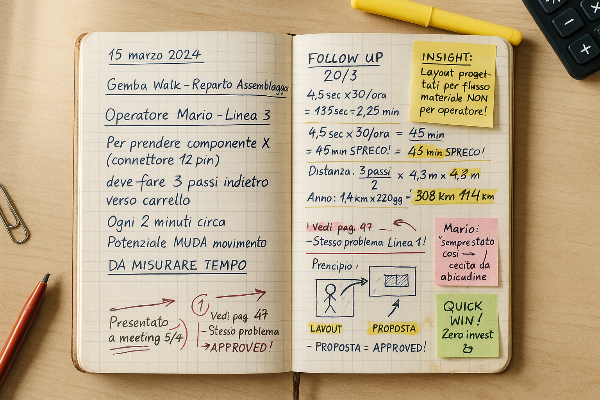 15 marzo 2024
Gemba Walk - Reparto Assemblagga
Operatore Mario - Linea 3
Per prendere componente X
(connettore 12 pin)
deve fare 3 passi indietro
verso carrello
Ogni 2 minuti circa
Potenziale MUDA movimento
DA MISURARE TEMPO
Presentato
a meeting 5/4
1
Vedi pag. 47
- Stesso problema
→ APPROVED!
FOLLOW UP
20/3
4,5 sec x 30/ora
= 135 sec = 2,25 min
4,5 sec x 30/ora = 45 min
= 45 min SPRECO! = 45 min SPRECO!
Distanza. 3 passi / 2 x 4,3 m x 4,8 m
Anno: 1,4 km x 220 gg = 308 km 114 km
! Vedi pag. 47 -
- Stesso problema Linea 1!
Prencipio:
LAYOUT
PROPOSTA
- PROPOSTA = APPROVED!
INSIGHT:
Layout proget-
tati per flusso
materiale NON
per operatore!
Mario:
"sempre stato
cosi →
cecita da
abicudine
QUICK
WIN!
Zero invest